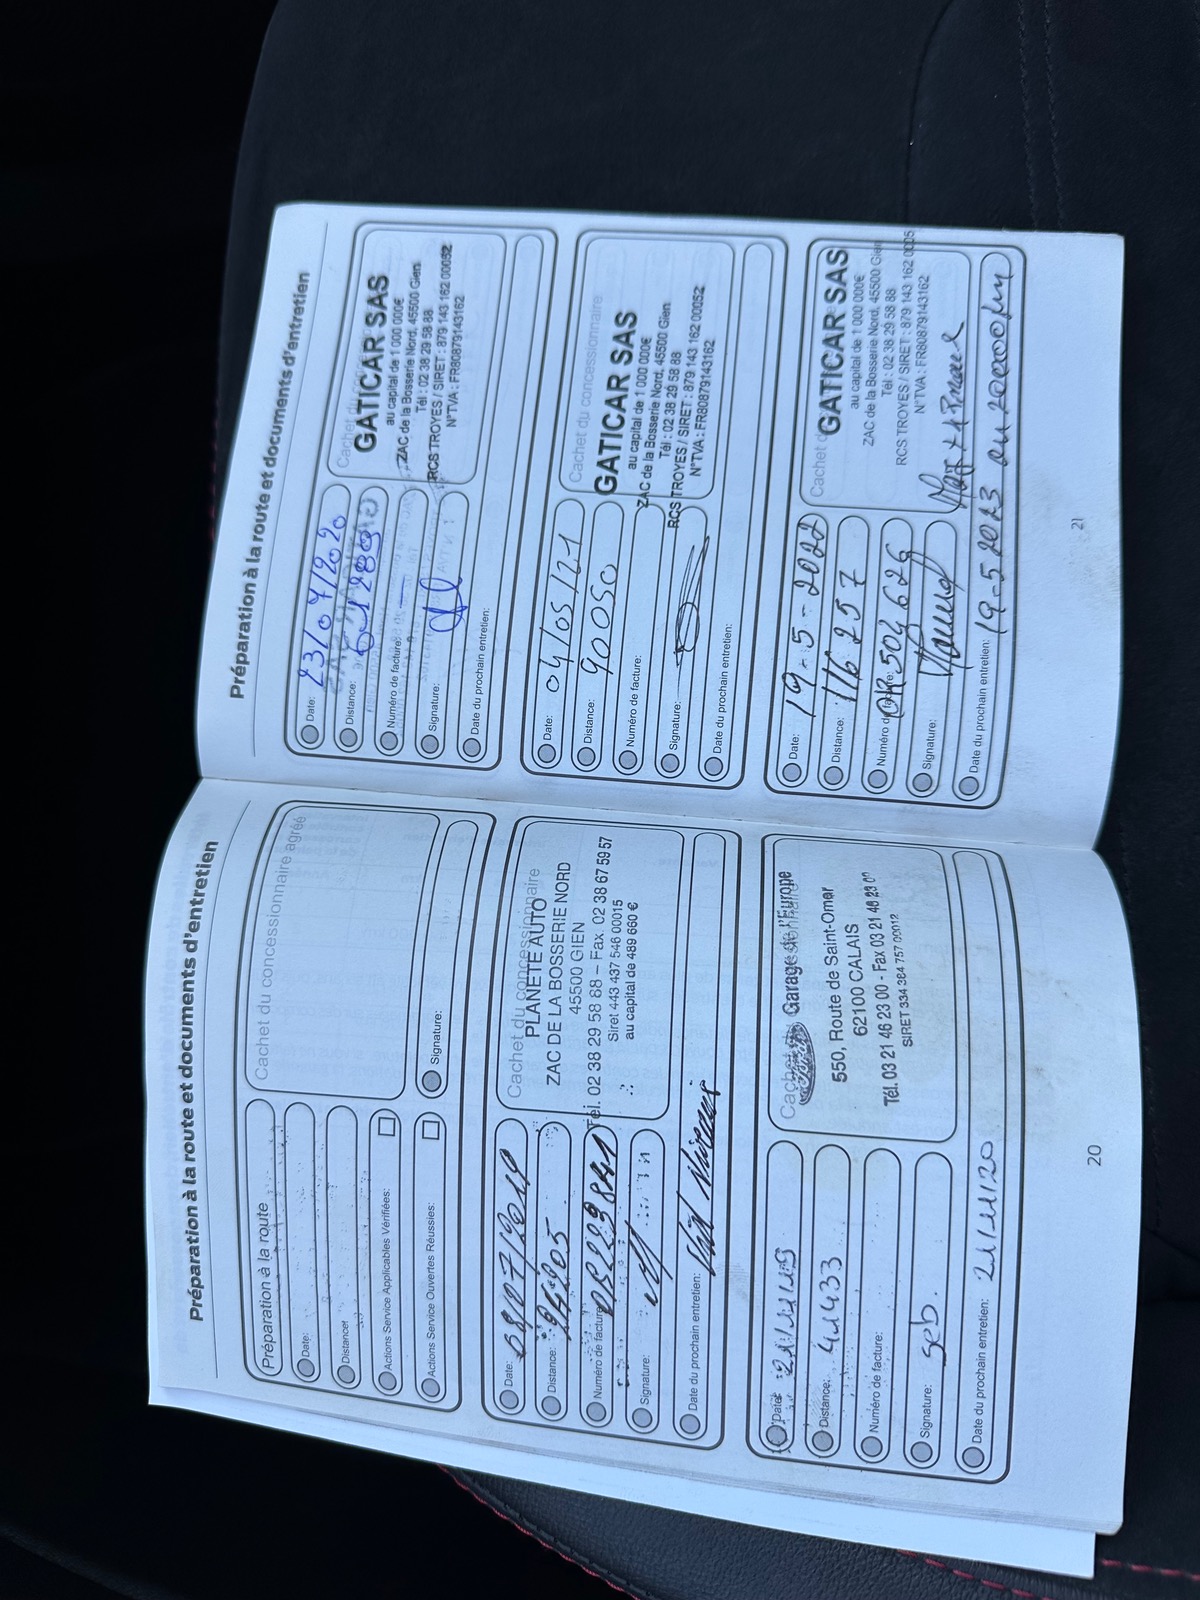 Préparation à la route et documents d'entretien
Préparation à la route
Cachet du concessionnaire agréé
Date:
Distance:
Actions Service Applicables Vérifiées:
Actions Service Ouvertes Réussies:
Signature:
Date: 08/07/2019
Distance:
Numéro de facture:
Signature:
Date du prochain entretien:
Cachet du concessionnaire
PLANETE AUTO
ZAC DE LA BOSSERIE NORD
45500 GIEN
Tél. 02 38 29 58 88 – Fax. 02 38 67 59 57
Siret 443 437 546 00015
au capital de 489 660 €
Date: 21/11/19
Distance: 41433
Numéro de facture:
Signature: seb.
Date du prochain entretien: 21/11/20
Garage de l'Europe
550, Route de Saint-Omer
62100 CALAIS
Tél. 03 21 46 23 00 - Fax 03 21 46 23 00
SIRET 334 364 757 00012
20
Préparation à la route et documents d'entretien
Date: 23/07/2020
Distance: 61289
Numéro de facture: —
Signature:
Date du prochain entretien:
GATICAR SAS
au capital de 1 000 000€
ZAC de la Bosserie Nord, 45500 Gien
Tél : 02 38 29 58 88
RCS TROYES / SIRET : 879 143 162 00052
N°TVA : FR80879143162
Date: 04/05/21
Distance: 90050
Numéro de facture:
Signature:
Date du prochain entretien:
Cachet du concessionnaire
GATICAR SAS
au capital de 1 000 000€
ZAC de la Bosserie Nord, 45500 Gien
Tél : 02 38 29 58 88
RCS TROYES / SIRET : 879 143 162 00052
N°TVA : FR80879143162
Date: 19-5-2022
Distance: 116257
Numéro de facture: OR504626
Signature:
Date du prochain entretien: 19-5-2023 ou 20000km
GATICAR SAS
au capital de 1 000 000€
ZAC de la Bosserie Nord, 45500 Gien
Tél : 02 38 29 58 88
RCS TROYES / SIRET : 879 143 162 0005
N°TVA : FR80879143162
21